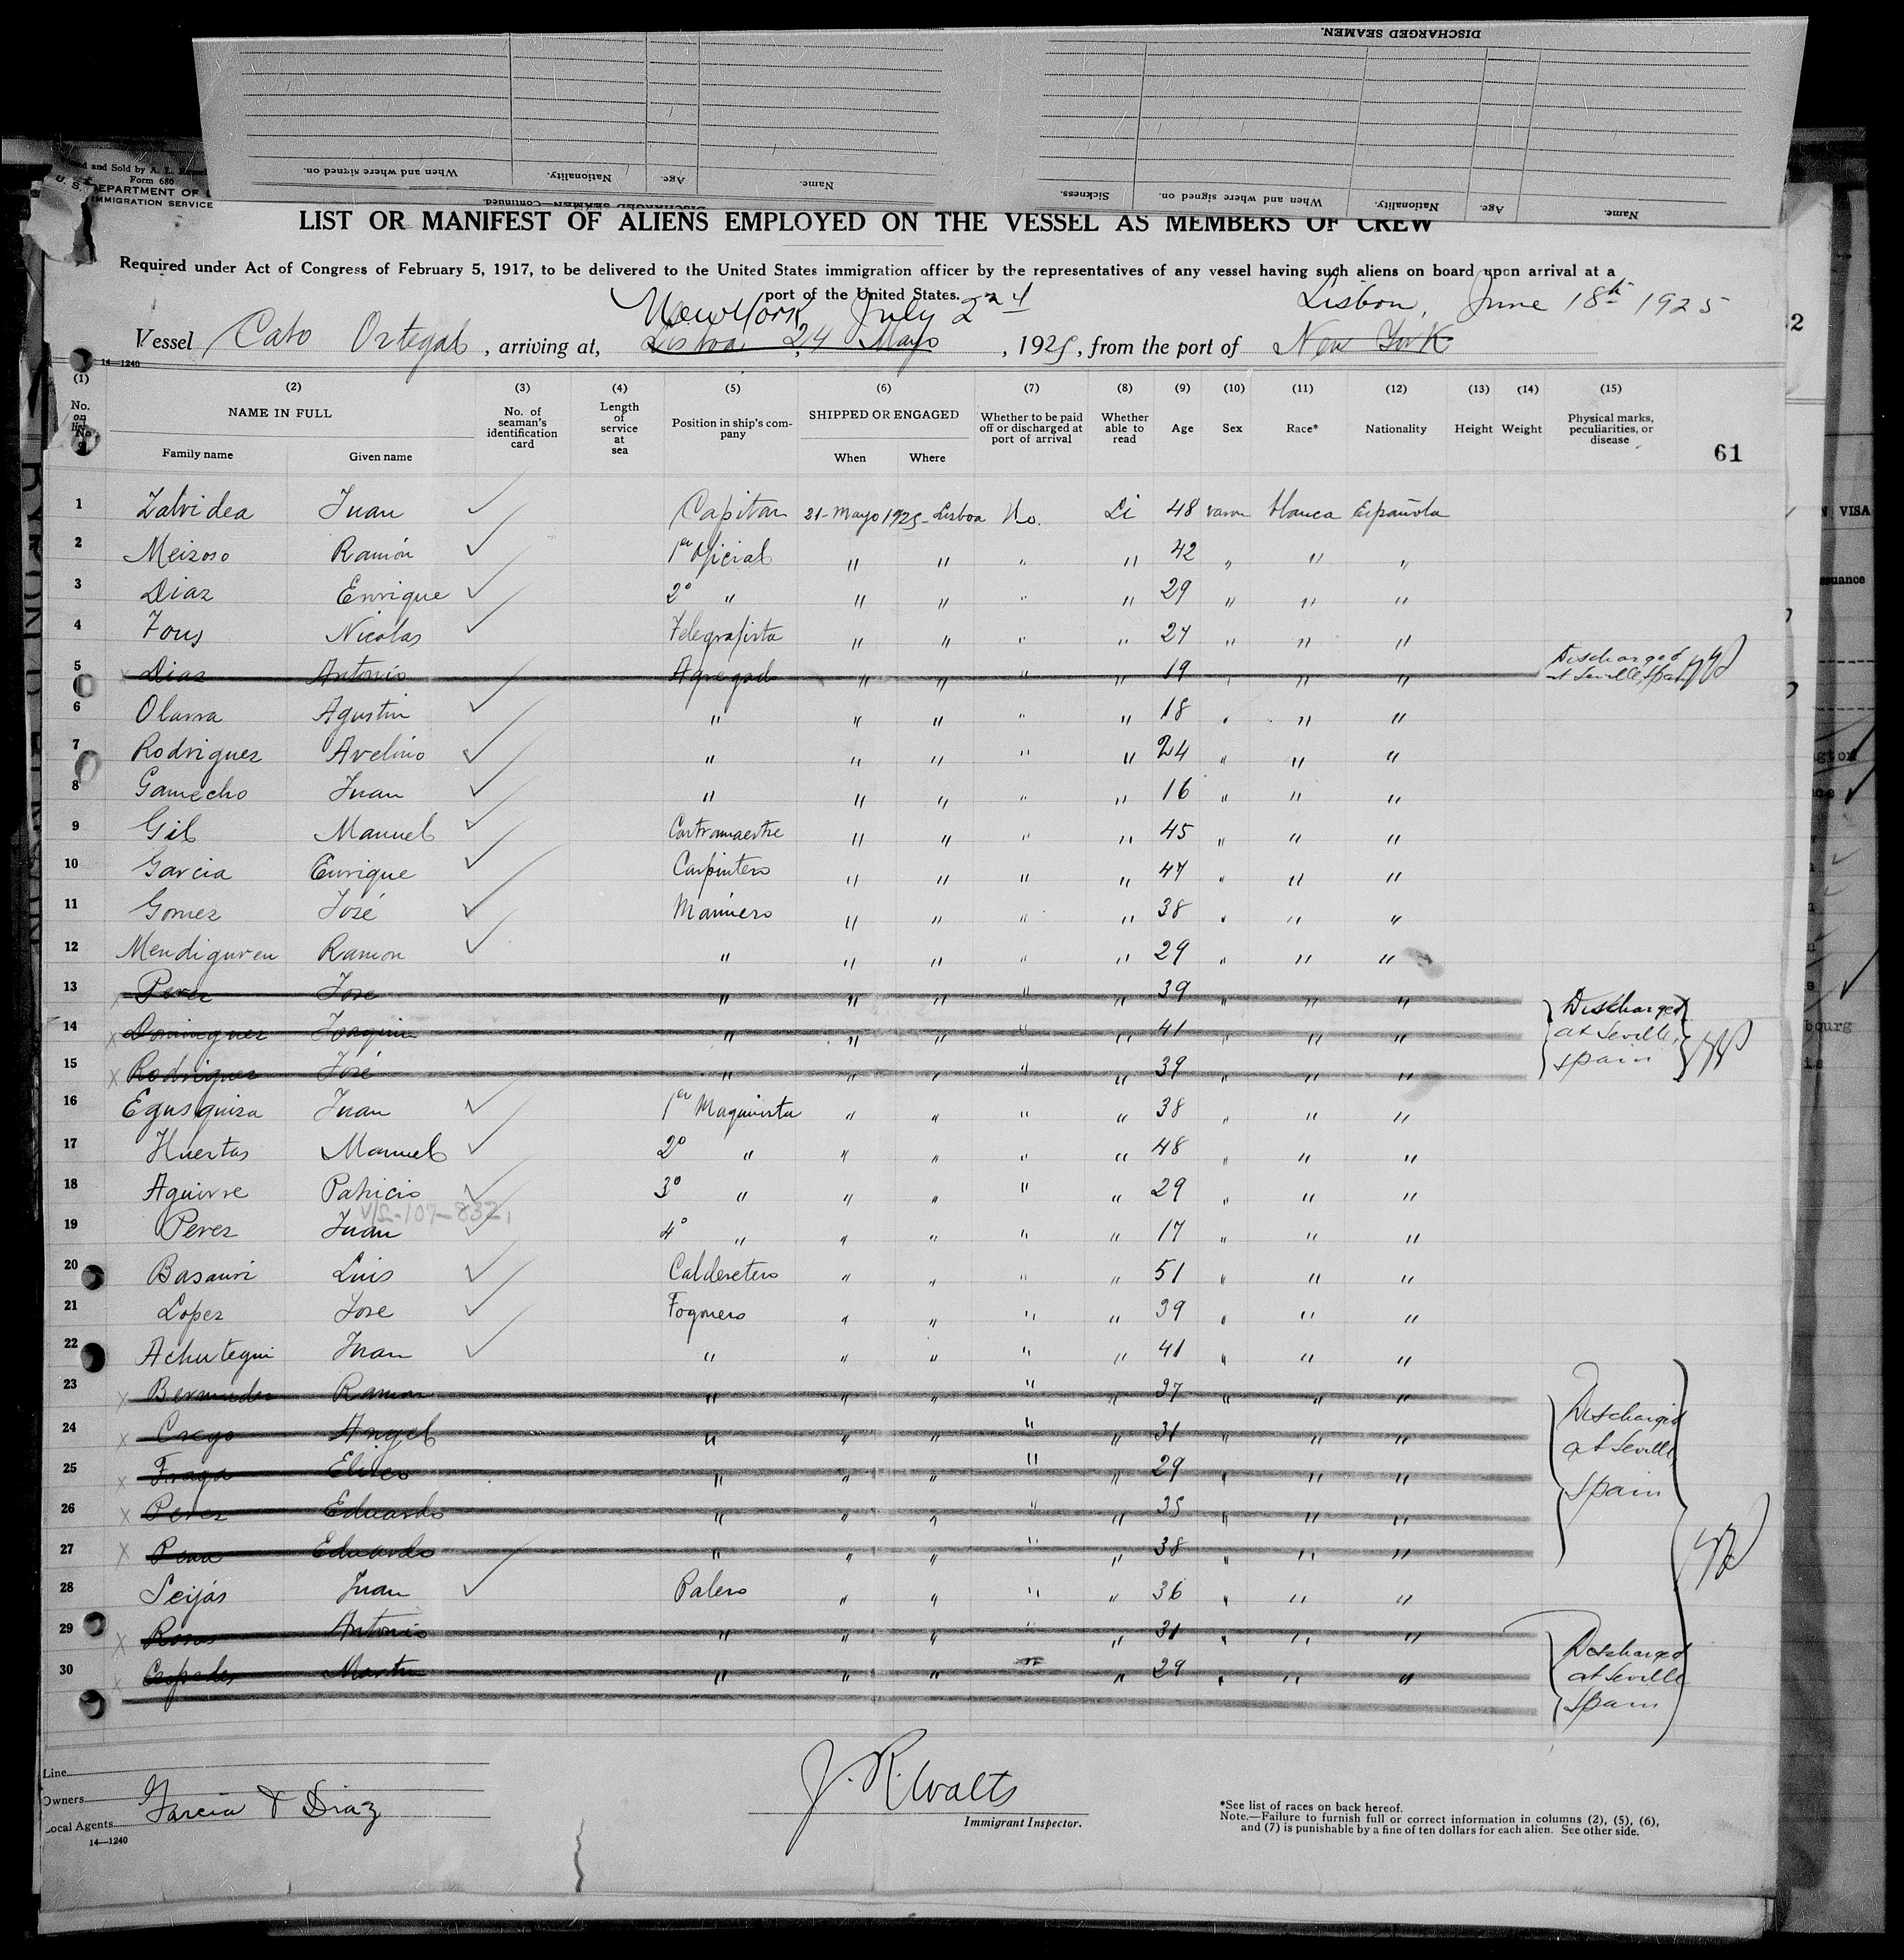 DISCHARGED SEAMEN.
When and where signed on. Nationality. Age. Name. Sickness. When and where signed on. Nationality. Age. Name.
DISCHARGED SEAMEN—Continued.
and Sold by A. L.
Form 680
U. S. DEPARTMENT OF
IMMIGRATION SERVICE
LIST OR MANIFEST OF ALIENS EMPLOYED ON THE VESSEL AS MEMBERS OF CREW
Required under Act of Congress of February 5, 1917, to be delivered to the United States immigration officer by the representatives of any vessel having such aliens on board upon arrival at a
port of the United States.
New York July 2nd Lisbon, June 18th 1925
Vessel Cabo Ortegal, arriving at, Lisboa 24 Mayo, 1925, from the port of New York
14—1240
(1) (2) (3) (4) (5) (6) (7) (8) (9) (10) (11) (12) (13) (14) (15)
No. on list NAME IN FULL No. of seaman's identification card Length of service at sea Position in ship's company SHIPPED OR ENGAGED Whether to be paid off or discharged at port of arrival Whether able to read Age Sex Race* Nationality Height Weight Physical marks, peculiarities, or disease
Family name Given name When Where
61
1 Zalvidea Juan Capitan 21-Mayo 1925- Lisboa No. Li 48 varon blanca Española
2 Meizoso Ramón 1er Oficial " " " " 42 " " "
3 Diaz Enrique 2º " " " " " 29 " " "
4 Tous Nicolas Telegrafista " " " " 27 " " "
5 Diaz Antonio Agregado " " " " 19 " " " Discharged at Seville, Spain
6 Olavva Agustin " " " " " 18 " " "
7 Rodriguez Avelino " " " " " 24 " " "
8 Gamecho Juan " " " " " 16 " " "
9 Gil Manuel Contramaestre " " " " 45 " " "
10 Garcia Enrique Carpintero " " " " 47 " " "
11 Gomez José Marinero " " " " 38 " " "
12 Mendiguren Ramon " " " " " 29 " " "
13 Perez Jose " " " " " 39 " " "
14 Dominguez Joaquin " " " " " 41 " " "
15 Rodriguez José " " " " " 39 " " "
Discharged
at Seville,
Spain
16 Egusquiza Juan 1er Maquinista " " " " 38 " " "
17 Huertas Manuel 2º " " " " " 48 " " "
18 Aguirre Patricio 3º " " " " " 29 " " "
19 Perez Juan 4º " " " " " 17 " " "
20 Basauri Luis Calderetero " " " " 51 " " "
21 Lopez Jose Fogonero " " " " 39 " " "
22 Achutegui Juan " " " " " 41 " " "
23 Bermudez Ramon " " " " " 37 " " "
24 Crego Angel " " " " " 31 " " "
25 Fraga Eliseo " " " " " 29 " " "
26 Perez Eduardo " " " " " 35 " " "
27 Pena Eduardo " " " " " 38 " " "
Discharged
at Seville,
Spain
28 Seijás Juan Palero " " " " 36 " " "
29 Antonio " " " " " 31 " " "
30 Cespedes Martin " " " " " 29 " " "
Discharged
at Seville
Spain
Line
Owners
Garcia & Diaz
Local Agents
14—1240
J. R. Walts
Immigrant Inspector.
*See list of races on back hereof.
Note.—Failure to furnish full or correct information in columns (2), (5), (6),
and (7) is punishable by a fine of ten dollars for each alien. See other side.